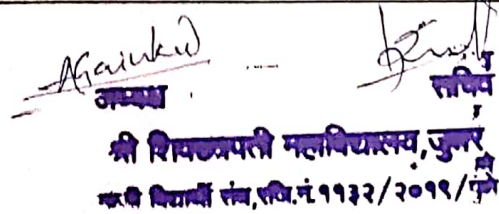 AGaikwd
अध्यक्ष सचिव
श्री शिवछत्रपती महाविद्यालय, जुन्नर
माजी विद्यार्थी संघ, रजि.नं.११३२/२०१९/पुणे